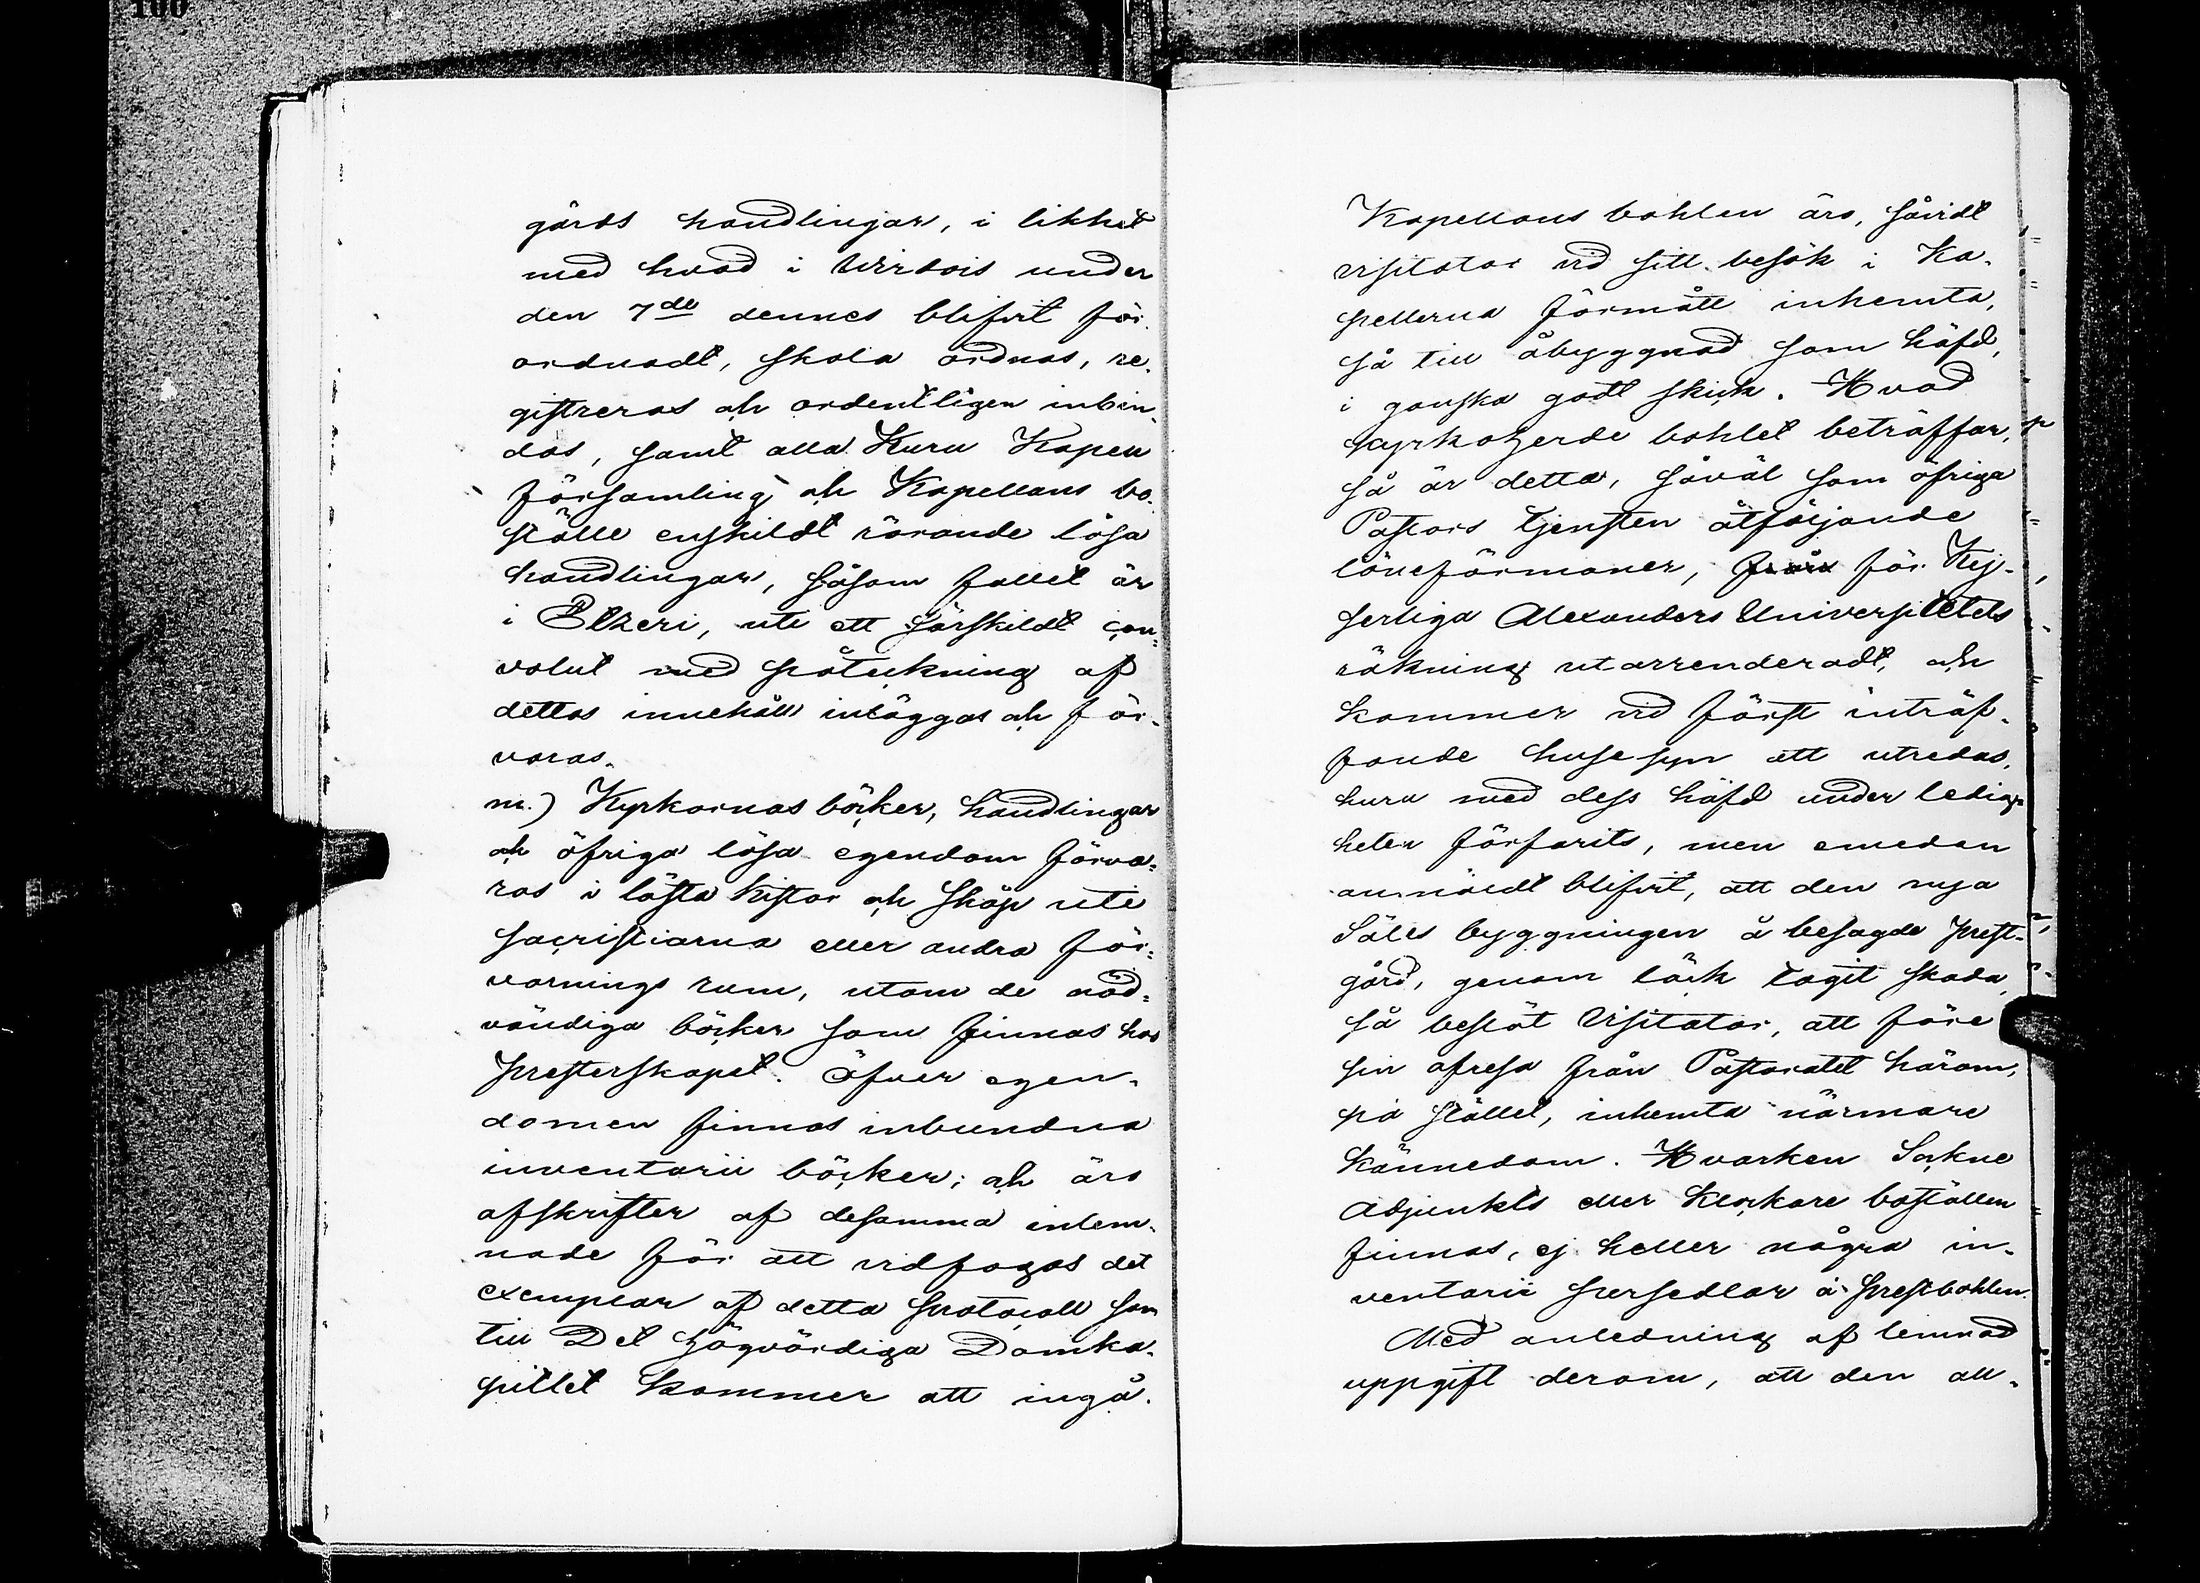 100
gårds handlingar, i likhet
med hvad i Wirdois under
den 7de dennes blifvit för
ordnadt, skola ordnas, re-
gistreras och ordentligen inbin-
das, samt alla Kuru Kapell
församling och Kapellans bo-
ställe enskildt rörande lösa
handlingar, såsom fallet är
i Etzeri, uti ett särskildt con-
volut med påteckning af
dettas innehåll inläggas och för-
varas.
m.) Kyrkornas böcker, handlingar
och öfriga lösa egendom förva-
ras i låsta kistor och skåp uti
sacristiarna eller andra för-
varnings rum, utom de nöd-
vändiga böcker som finnas hos
presterskapet. Öfver egen-
domen finnas inbundna
inventarii böcker; och äro
afskrifter af desamma inlem-
nade för att vidfogas det
exemplar af detta protocoll som
till Det högvördiga Domka-
pitlet kommer att ingå.
Kapellans bohlen äro, såvidt
visitator vid sitt besök i Ka-
pellerna förmått inhemta,
så till åbyggnad som häfd,
i ganska godt skick. Hvad
kyrkoherde bohlet beträffar,
så är detta, såväl som öfriga
Pastors tjensten åtföljande
löneförmåner, från för Kej-
serliga Alexanders Universitetets
räkning utarrenderadt, och
kommer vid först inträf-
fande husesyn att utredas,
huru med dess häfd under ledig-
heten förfarits, men emedan
anmäldt blifvit, att den nya
Säles byggningen å besagde prest-
gård, genom läck tagit skada,
så beslöt Visitator, att före
sin afresa från Pastoratet härom,
på stället, inhemta närmare
kännedom. Hvarken Sockne
adjunkts eller klockare boställen
finnas, ej heller några in-
ventarii persedlar å prestbohlen.
Med anledning af lemnad
uppgift derom, att den all-